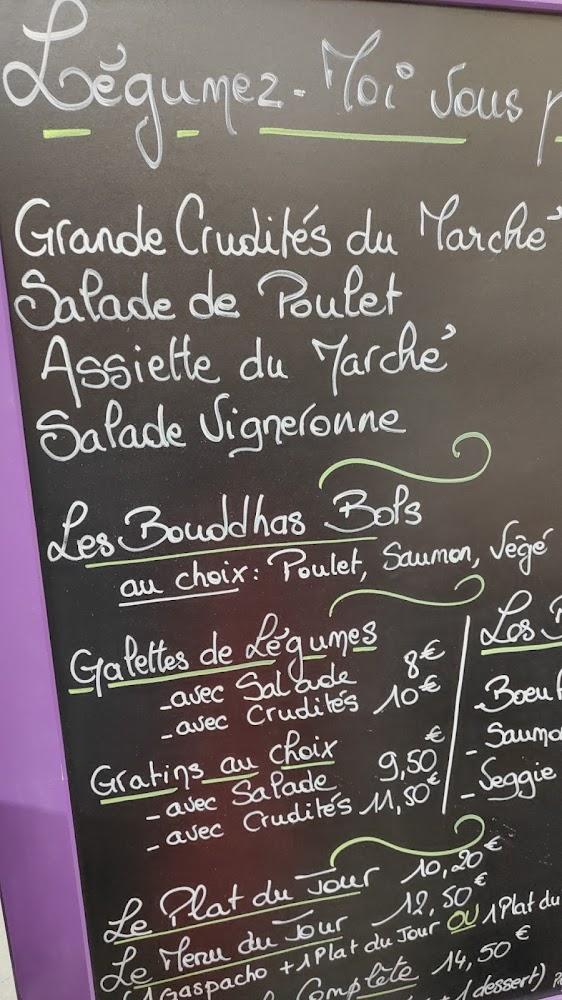 Légumez-Moi vous
Grande Crudités du Marché
Salade de Poulet
Assiette du Marché
Salade Vigneronne
Les Bouddhas Bols
au choix: Poulet, Saumon, Végé
Galettes de Légumes
- avec Salade 8€
- avec Crudités 10€
Gratins au choix
- avec Salade 9,50€
- avec Crudités 11,50€
Los
- Boeuf
- Saumo
- Veggie
Le Plat du Jour 10,20€
Le Menu du Jour 12,50€
(1 Gaspacho + 1 Plat du Jour OU 1 Plat du
Complète 14,50€
+ 1 dessert)